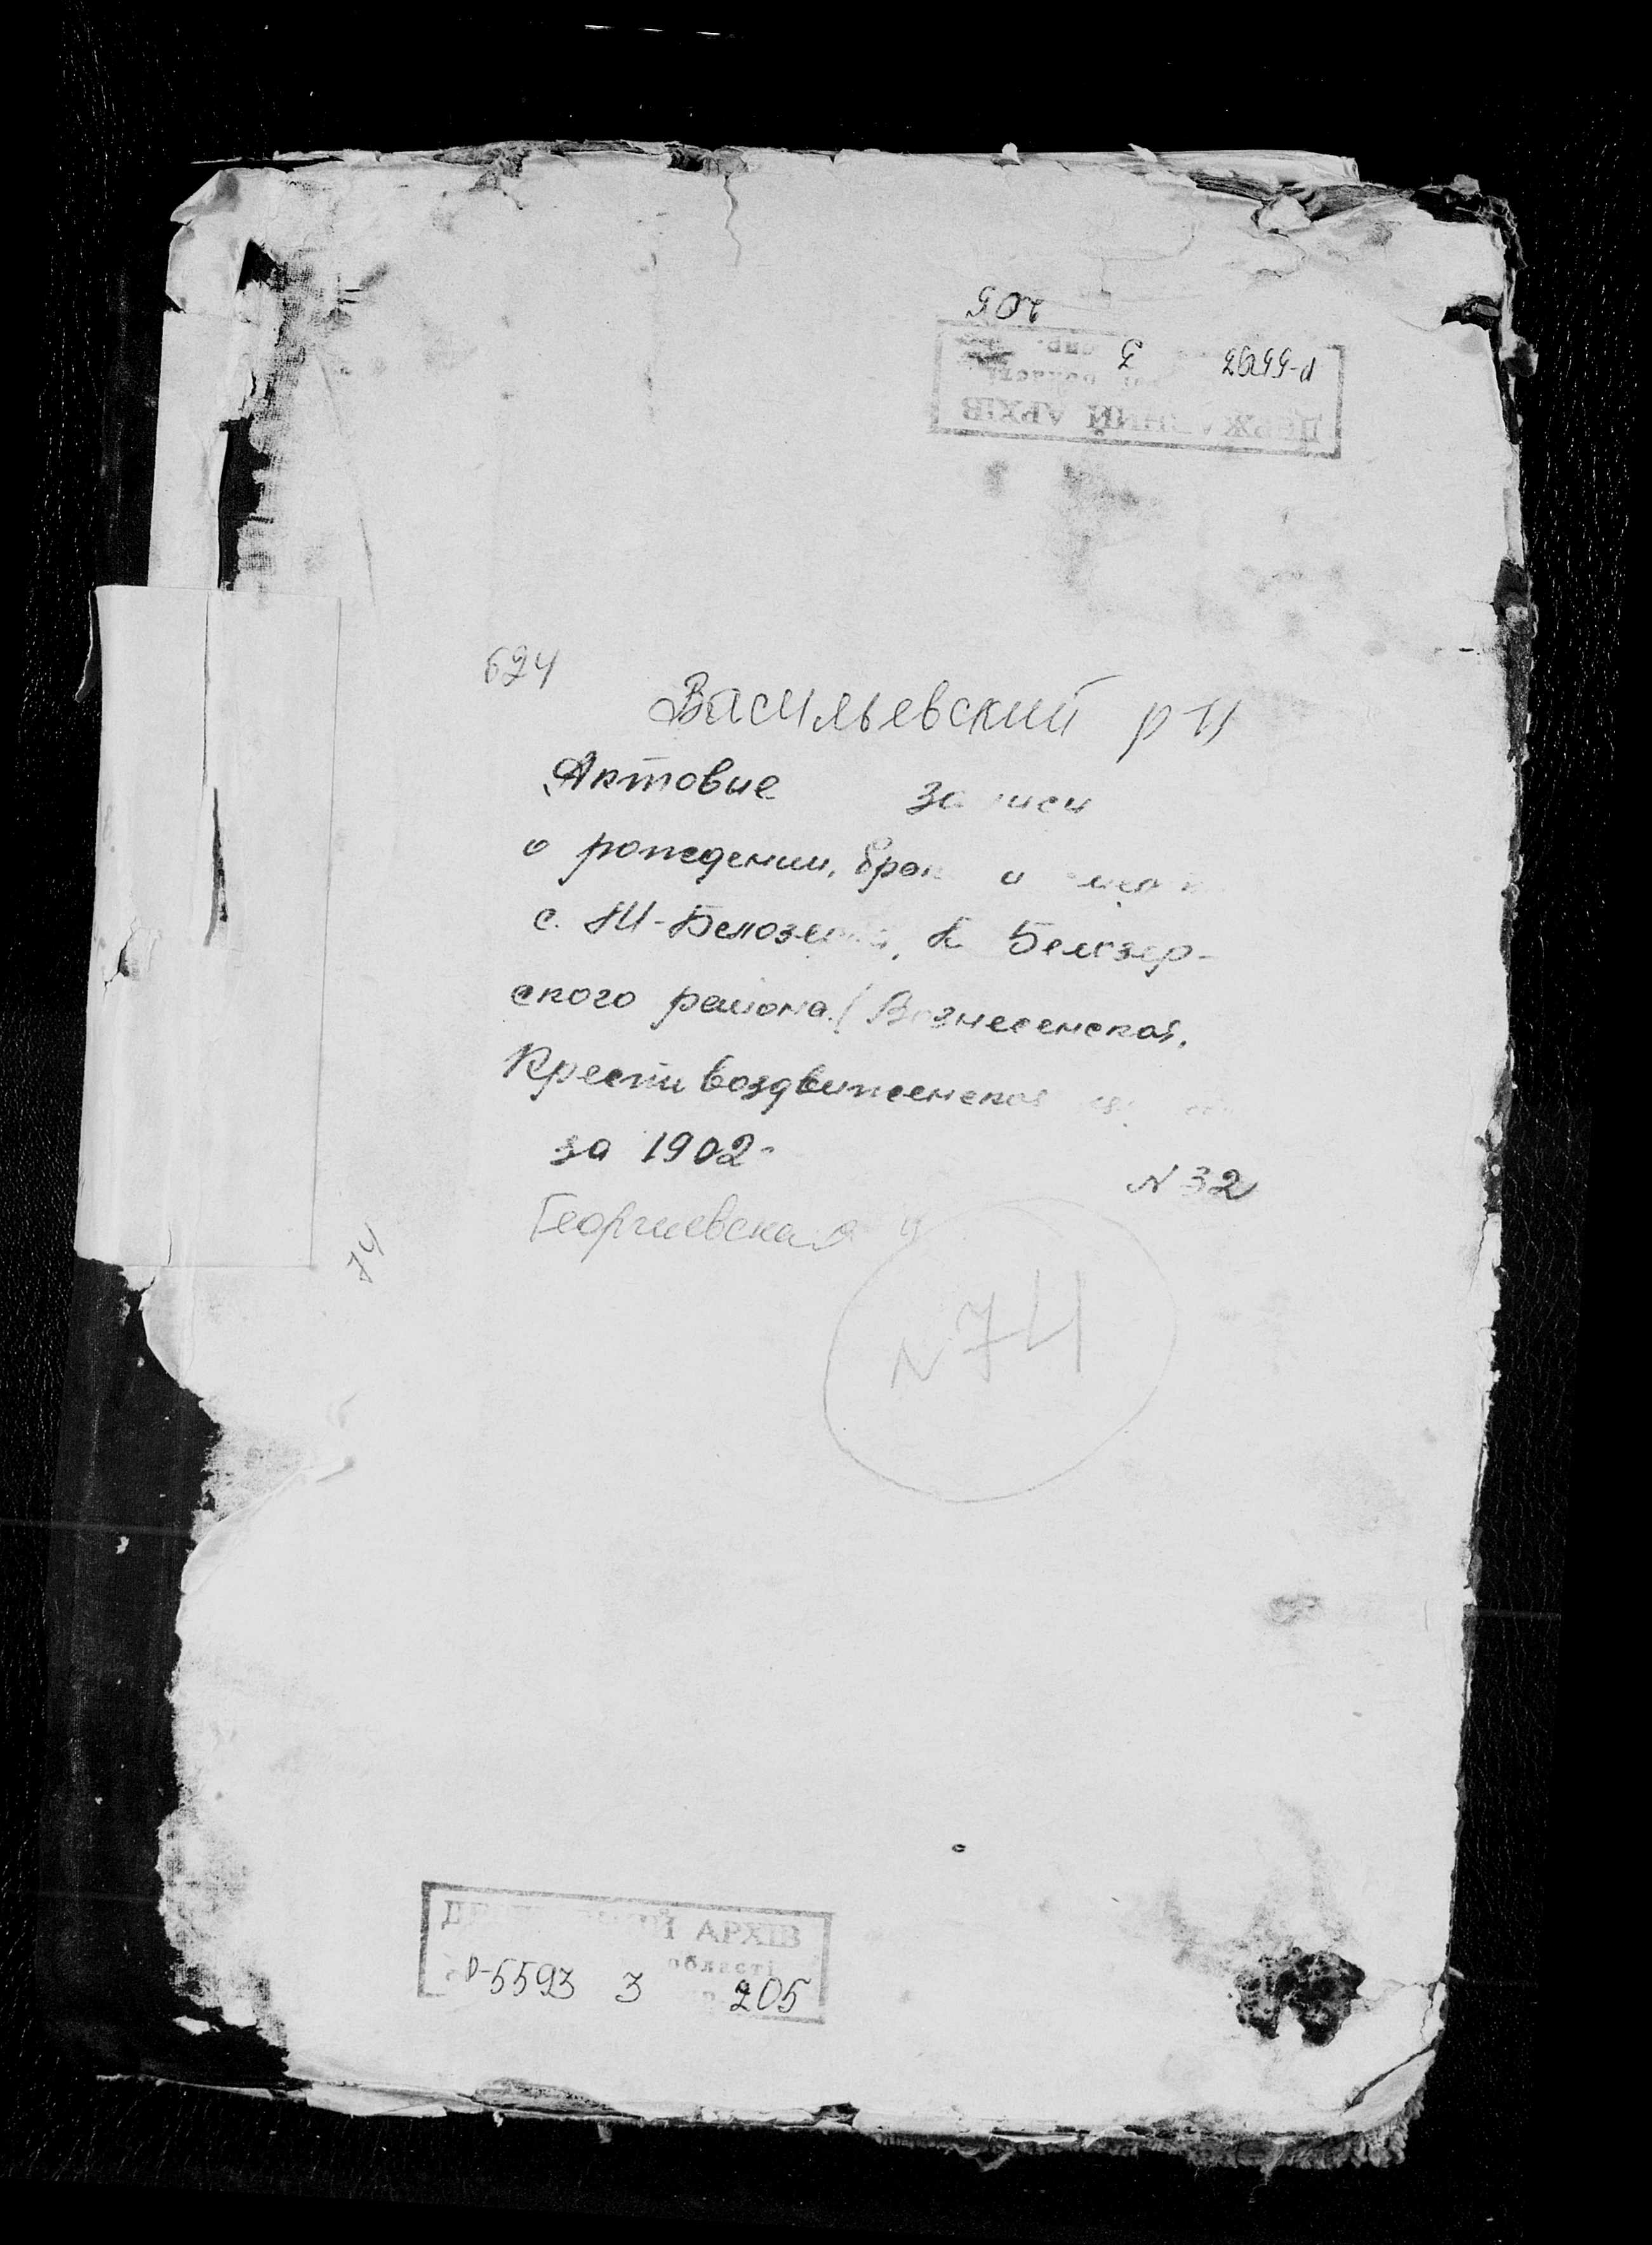 205
Р-5593 3
ДЕРЖАВНИЙ АРХІВ
області
спр.
624
Васильевский р-н
Актовие записи
о рождении, брак и
с. М-Белозерка, Белозер-
ского района (Вознесенская,
Крестивоздвиженская
за 1902
N 32
Георгиевская ц
74
N 74
ДЕРЖАВНИЙ АРХІВ
області
Р-5593 3 205